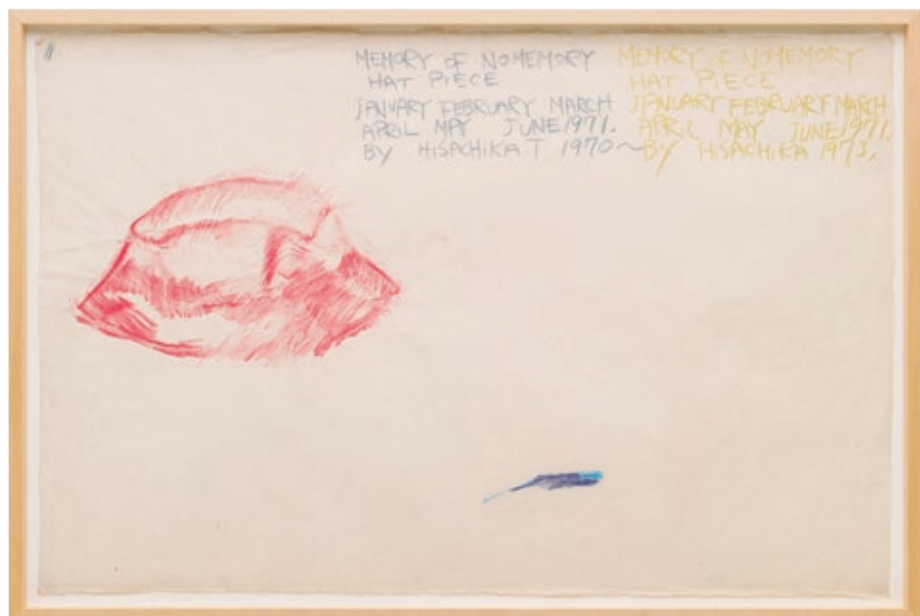 MEMORY OF NOMEMORY
HAT PIECE
JANUARY FEBRUARY MARCH
APRIL MAY JUNE 1971.
BY HISACHIKA T 1970~
MEMORY OF NOMEMORY
HAT PIECE
JANUARY FEBRUARY MARCH
APRIL MAY JUNE 1971.
BY HISACHIKA 1973.